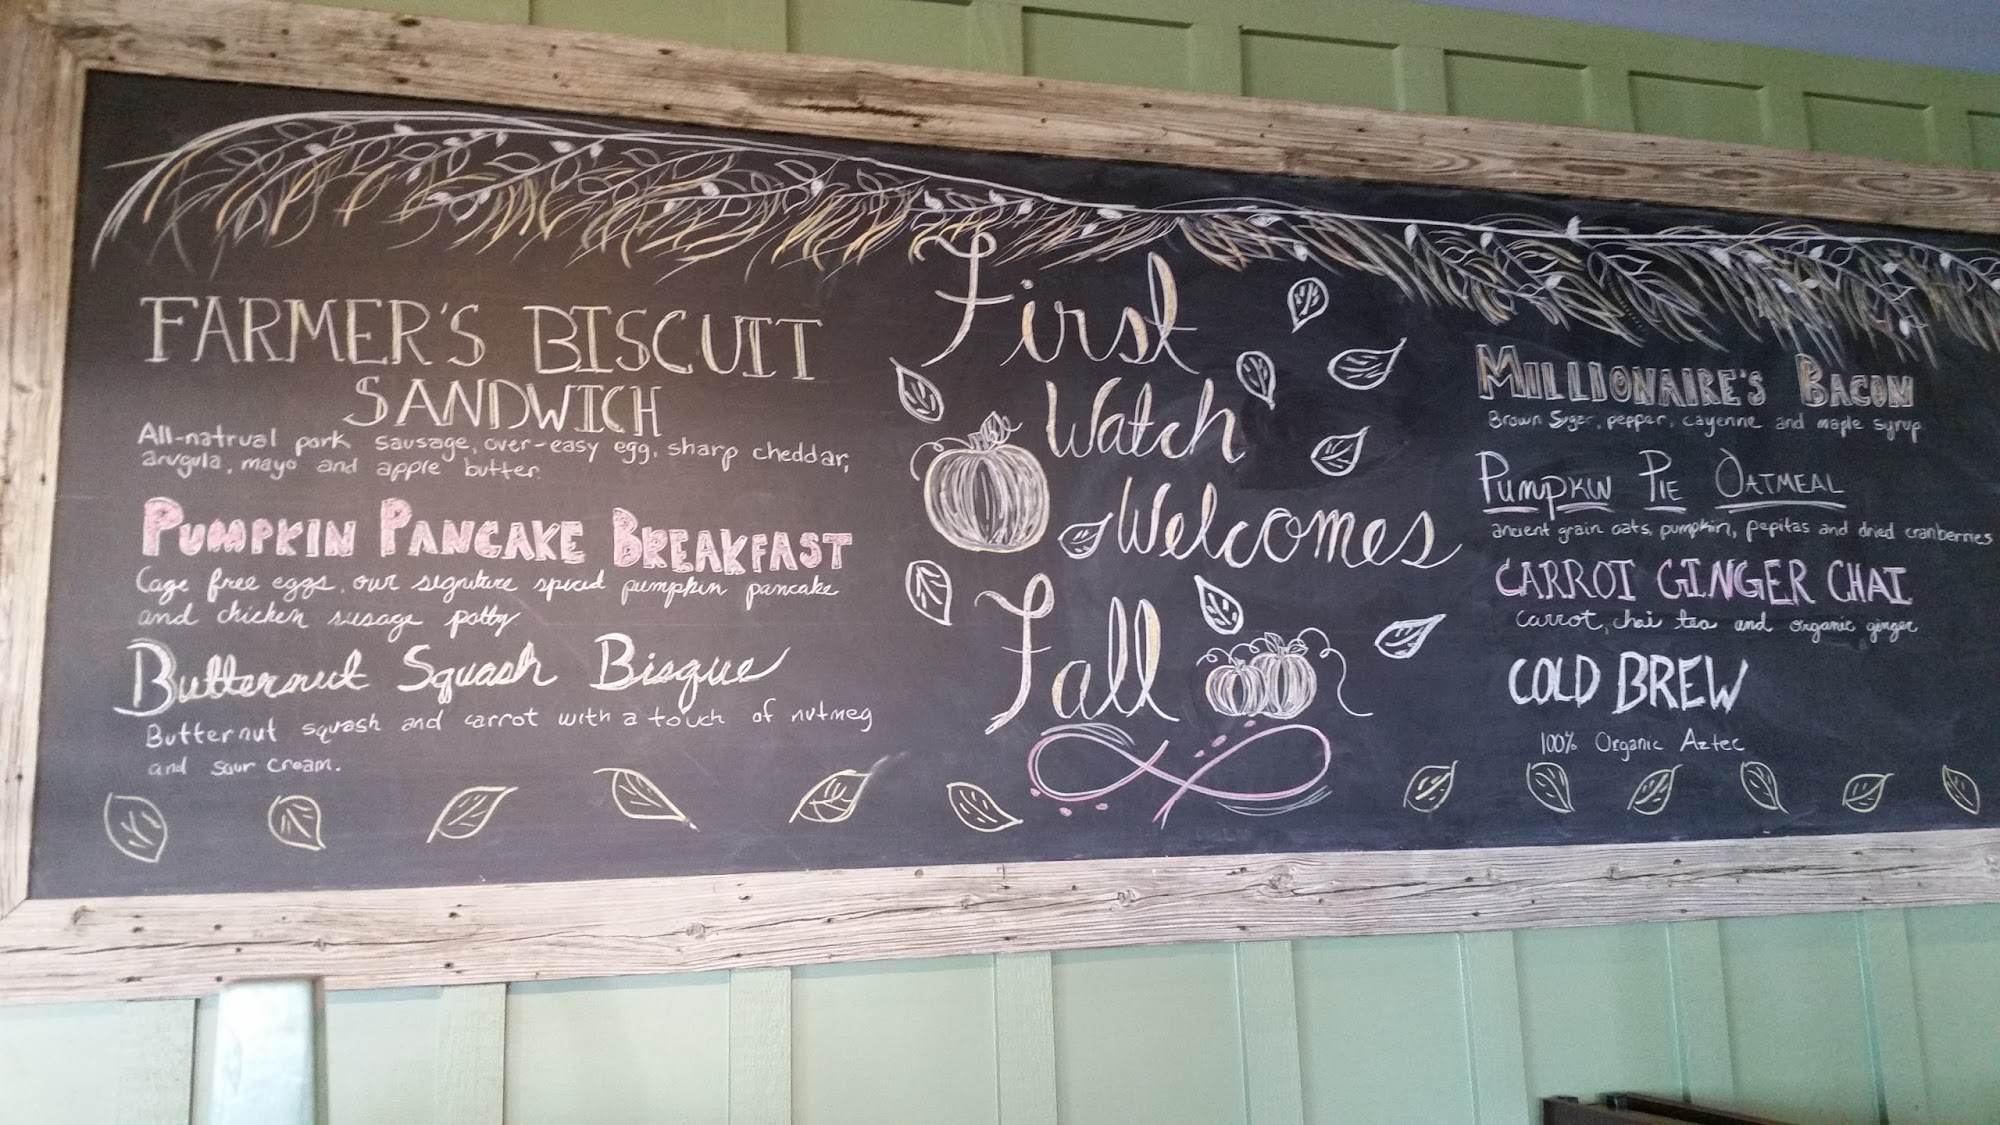 FARMER'S BISCUIT
SANDWICH
All-natrual pork sausage, over-easy egg, sharp cheddar,
arugula, mayo and apple butter.
PUMPKIN PANCAKE BREAKFAST
Cage free eggs, our signature spiced pumpkin pancake
and chicken susage patty
Butternut Squash Bisque
Butternut squash and carrot with a touch of nutmeg
and sour cream.
First
Watch
Welcomes
Fall
MILLIONAIRE'S BACON
Brown Suger, pepper, cayenne and maple syrup
PUMPKIN PIE OATMEAL
ancient grain oats, pumpkin, pepitas and dried cranberries
CARROT GINGER CHAI
carrot, chai tea and organic ginger
COLD BREW
100% Organic Aztec